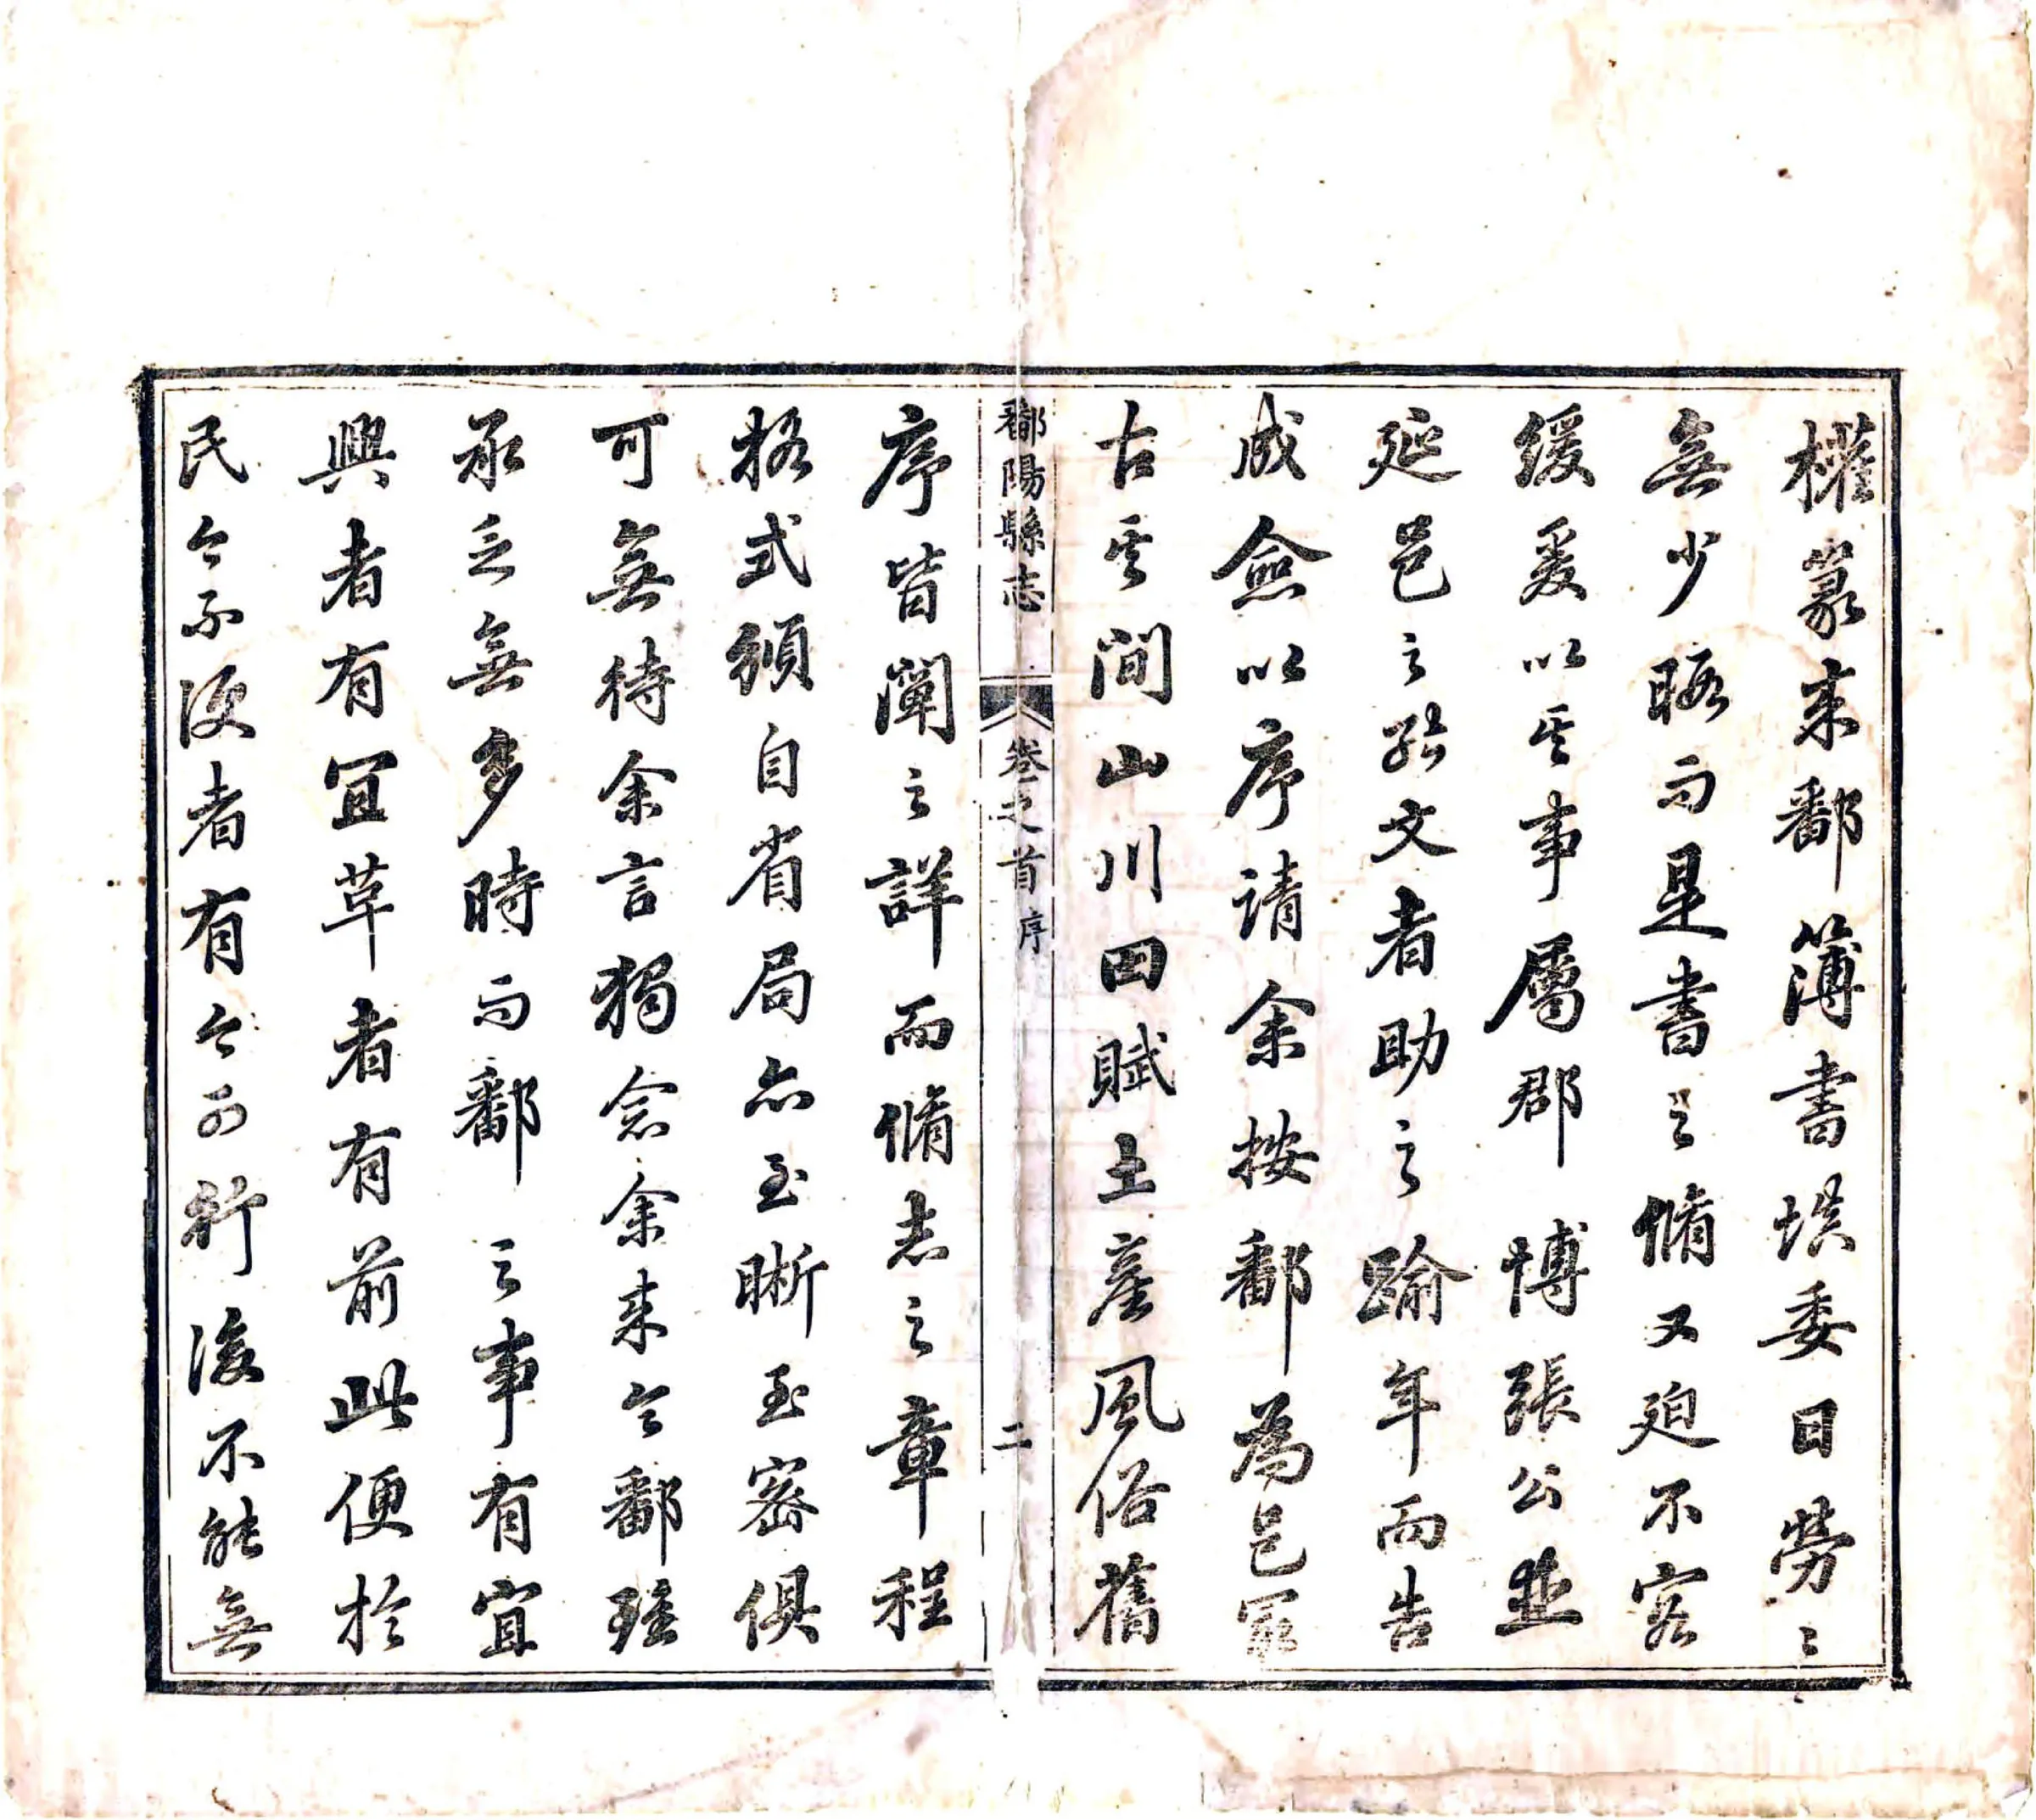 權篆来鄱簿書填委日勞〻
無少暇而是書之脩又迫不容
緩爰以其事屬郡博張公並
延邑之能文者助之踰年而告
成僉以序請余按鄱為邑冣
古其間山川田賦土產風俗舊
鄱陽縣志 卷之首 序 二
序皆闡之詳而脩志之章程
格式頒自省局亦至晰至密俱
可無待余言獨念余来令鄱瑾
承乏無多時而鄱之事有宜
興者有宜革者有前此便於
民今不便者有今可行後不能無